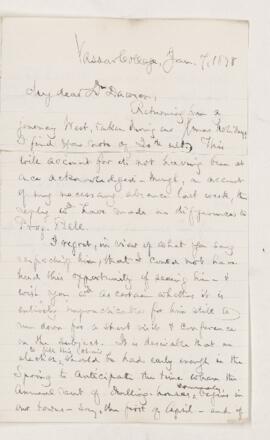 Vassar College, Jan. 7, 1878
My dear Dr Dawson,
Returning from a
journey West, taken during our Xmas Holidays
I find your note of 20th ult. This
will account for its not having been at
once acknowledged - though, on account
of my necessary absence last week, the
reply wd have made no difference to
Prof. Bell.
I regret, in view of what you say
respecting him, that I could not have
had this opportunity of seeing him - &
wish you wd ascertain whether it is
entirely impracticable for him still to
run down for a short visit & conference
on the subject. It is desirable that an
to fill this chair
election should be had early enough in the
Spring to anticipate the time when the
annual rent of dwelling houses begins in
our town - say, the first of April - and of